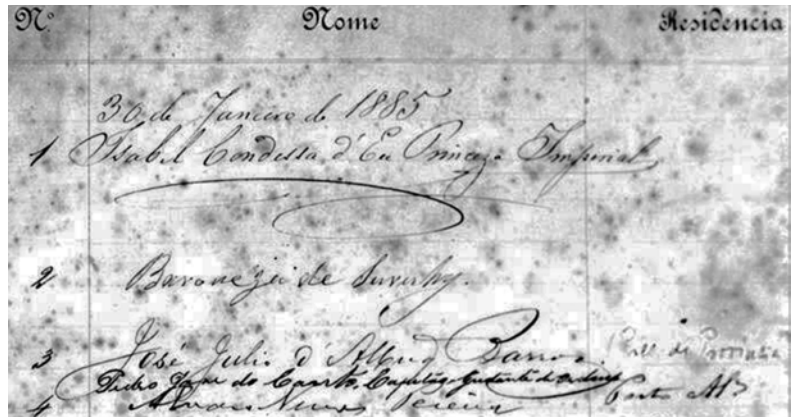 Nº Nome Residencia
30 de Janeiro de 1885
1 Isabel Condessa d'Eu Princeza Imperial
2 Baroneza de Suruhy.
3 José Julio d'Albuq Barros Provincia
Pedro José do Capitão Ajudante de ordens
4 Alvaro Nunes Pereira Porto Alº